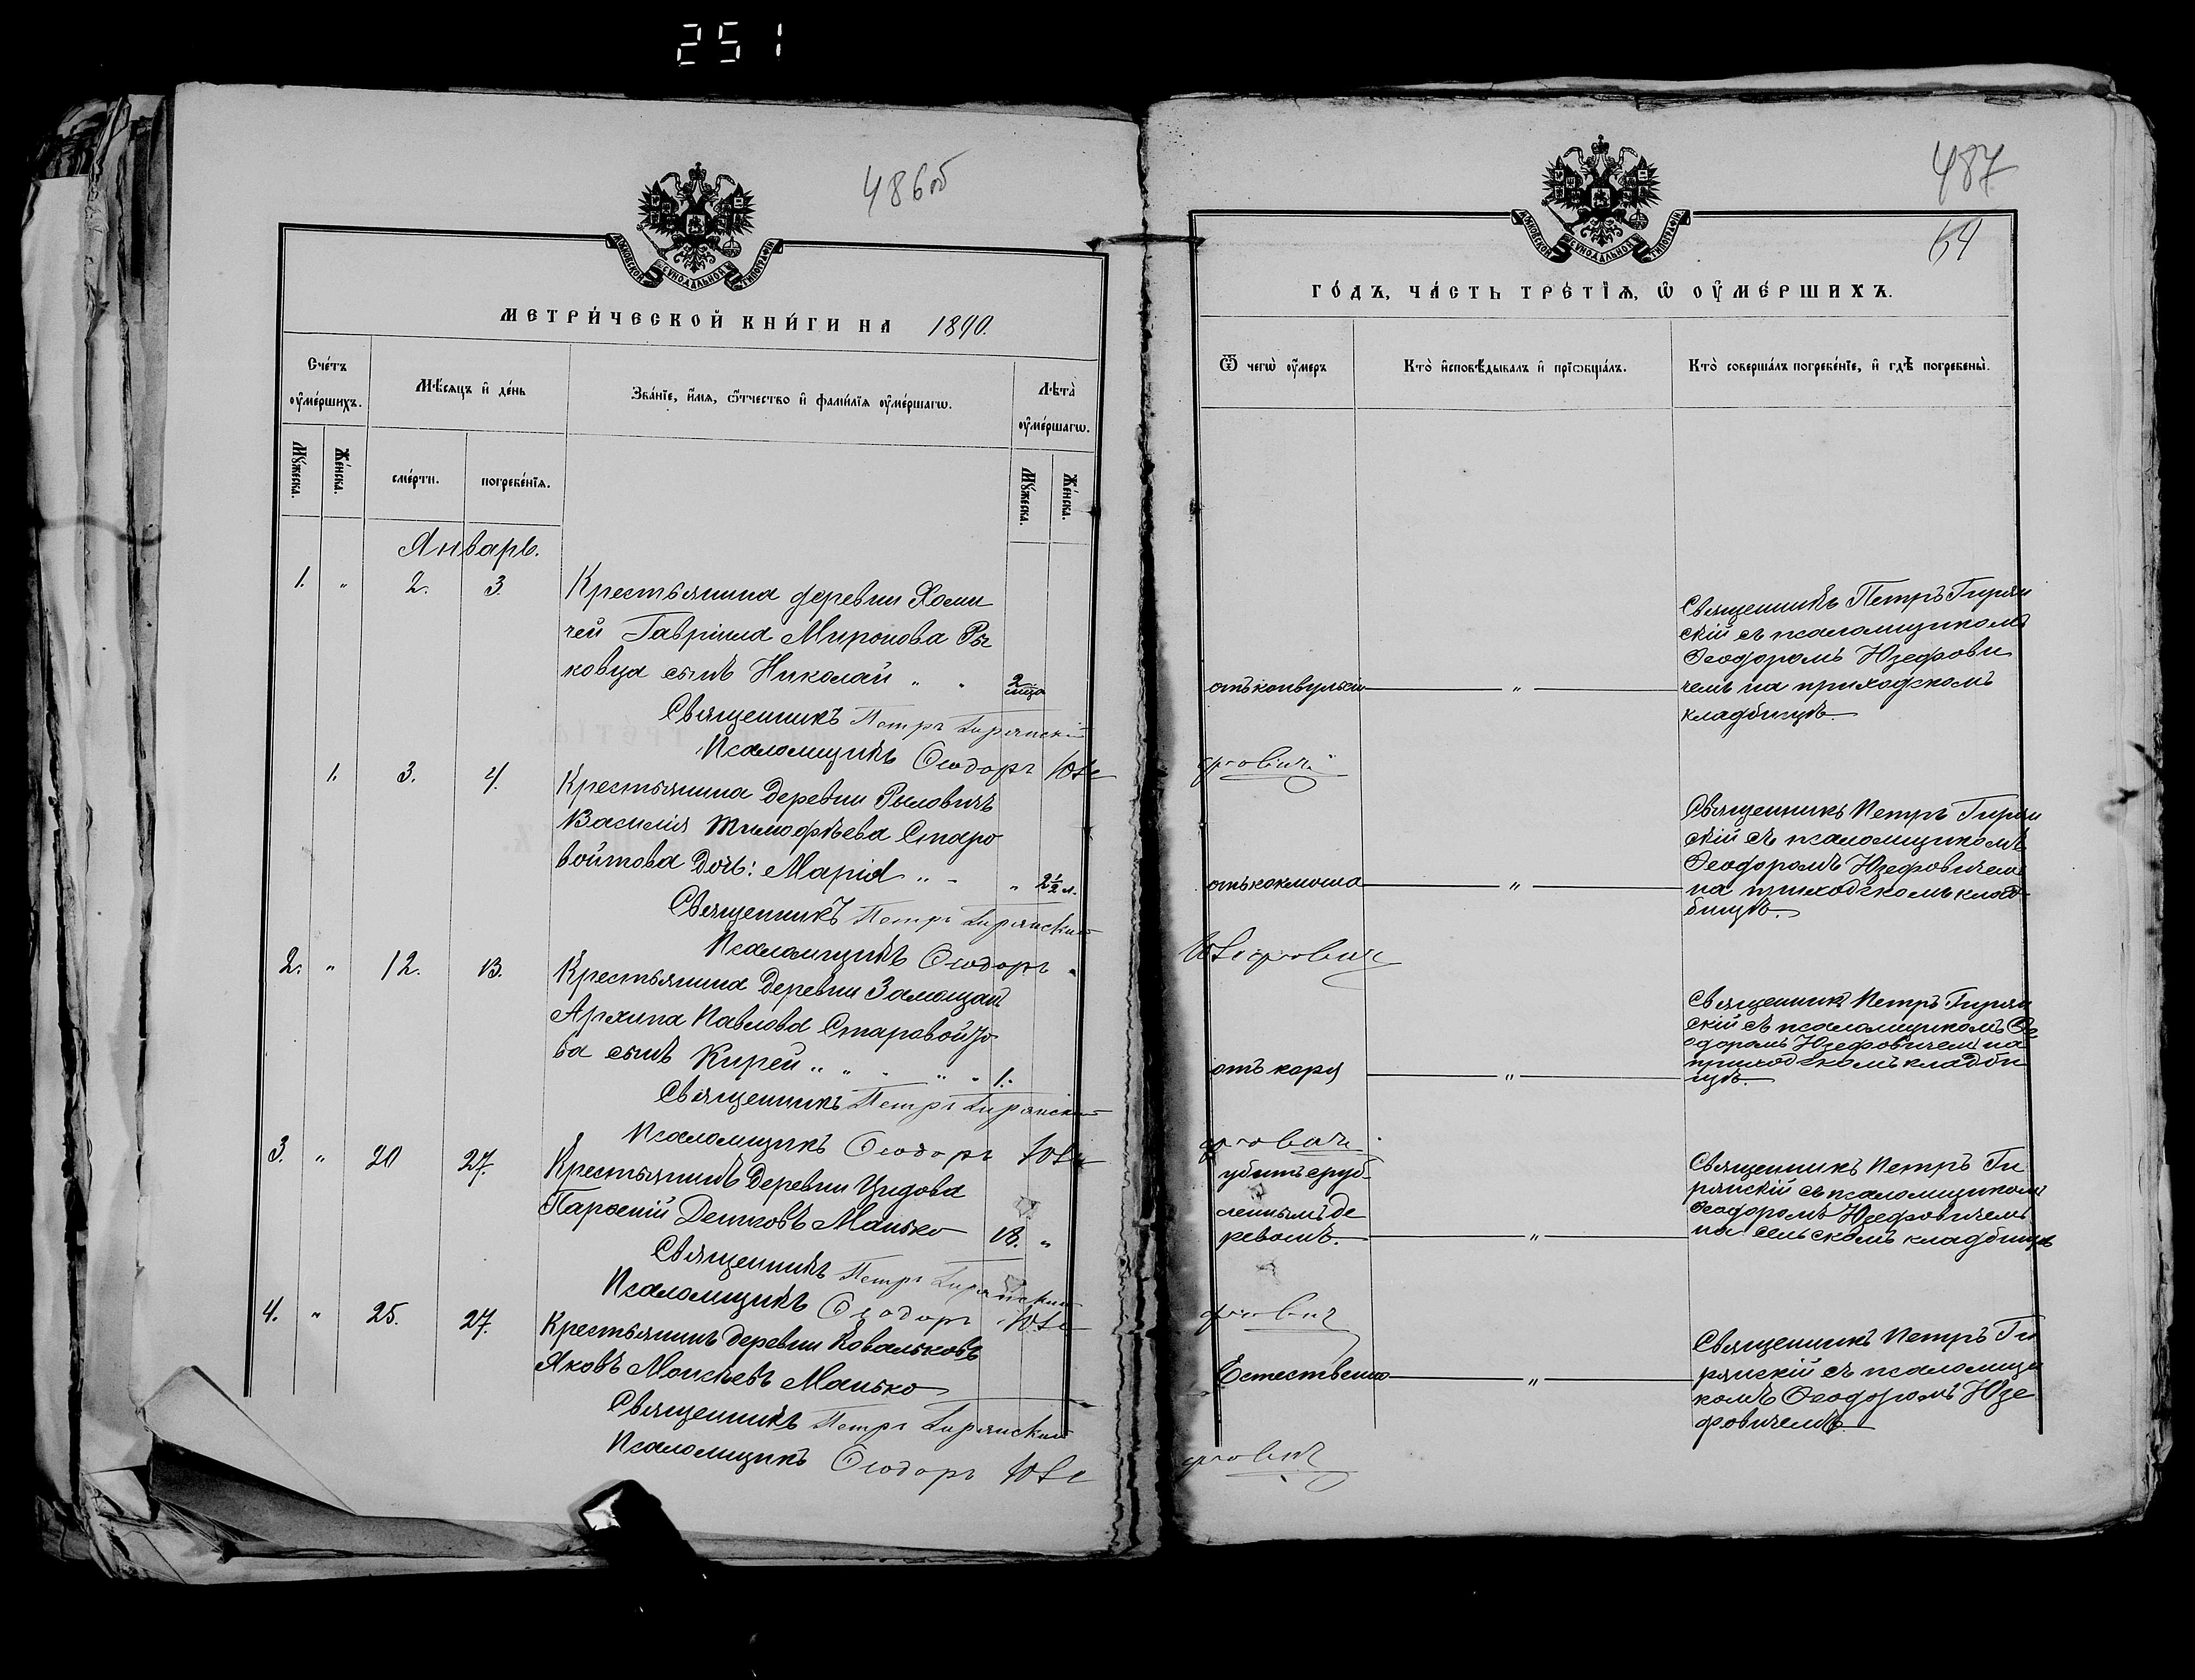 251
486об
МОСКОВСКОЙ СѴНОДАЛЬНОЙ ТИПОГРАФІИ
МЕТРИ́ЧЕСКОЙ КНИ́ГИ НА 1890.
Сче́тъ оу҆ме́ршихъ.
Мѣ́сяцъ и҆ де́нь
Зва́нїе, и҆́мя, ѻ҆́тчество и҆ фами́лїя оу҆ме́ршагѡ.
Лѣ́та оу҆ме́ршагѡ.
Мꙋ́жеска.
Же́нска.
сме́рти.
погребе́нїя.
Мꙋ́жеска.
Же́нска.
Январь.
1. " 2. 3.
Крестьянина деревни Хоми
чей Гавріила Миронова Ры
ковца сынъ Николай " " 2 мца
Священникъ Петръ Гирянскій
Псаломщикъ Ѳеодоръ Юзе
1. 3. 4.
Крестьянина деревни Рыловичъ
Василія Тимофѣева Старо
войтова дочь: Марія " " " 2½ л.
Священникъ Петръ Гирянскій
Псаломщикъ Ѳеодоръ
2. " 12. 13.
Крестьянина деревни Замощай
Архипа Павлова Старовойто
ва сынъ Кирей " " " " " 1.
Священникъ Петръ Гирянскій
Псаломщикъ Ѳеодоръ Юзе
3. " 20 27.
Крестьянинъ деревни Цидова
Парѳеній Манько 18. "
Священникъ Петръ Гирянскій
Псаломщикъ Ѳеодоръ Юзе
4. " 25. 27.
Крестьянинъ деревни Ковальковъ
Яковъ Моисѣевъ Манько
Священникъ Петръ Гирянскій
Псаломщикъ Ѳеодоръ Юзе
487
64
МОСКОВСКОЙ СѴНОДАЛЬНОЙ ТИПОГРАФІИ
ГО́ДЪ, ЧА́СТЬ ТРЕ́ТЇѦ, Ѡ҆ ОУ҆МЕ́РШИХЪ.
Ѿ чегѡ̀ оу҆́меръ
Кто̀ и҆сповѣ́дывалъ и҆ прїѡбща́лъ.
Кто̀ соверша́лъ погребе́нїе, и҆ гдѣ̀ погребены̀.
отъ конвульсій "
Священникъ Петръ Гирян
скій съ псаломщикомъ
Ѳеодоромъ Юзефови
чемъ на приходскомъ
кладбищѣ.
фовичъ
отъ коклюша "
Священникъ Петръ Гирян
скій съ псаломщикомъ
Ѳеодоромъ Юзефовичемъ
на приходскомъ клад-
бищѣ.
Юзефовичъ
отъ коря "
Священникъ Петръ Гирян
скій съ псаломщикомъ Ѳе
одоромъ Юзефовичемъ на
приходскомъ кладби
щѣ.
фовичъ
убитъ сруб-
леннымъ де
ревомъ. "
Священникъ Петръ Ги
рянскій съ псаломщикомъ
Ѳеодоромъ Юзефовичемъ
на сельскомъ кладбищѣ
фовичъ
Естественно "
Священникъ Петръ Ги
рянскій съ псаломщи
комъ Ѳеодоромъ Юзе
фовичемъ.
фовичъ